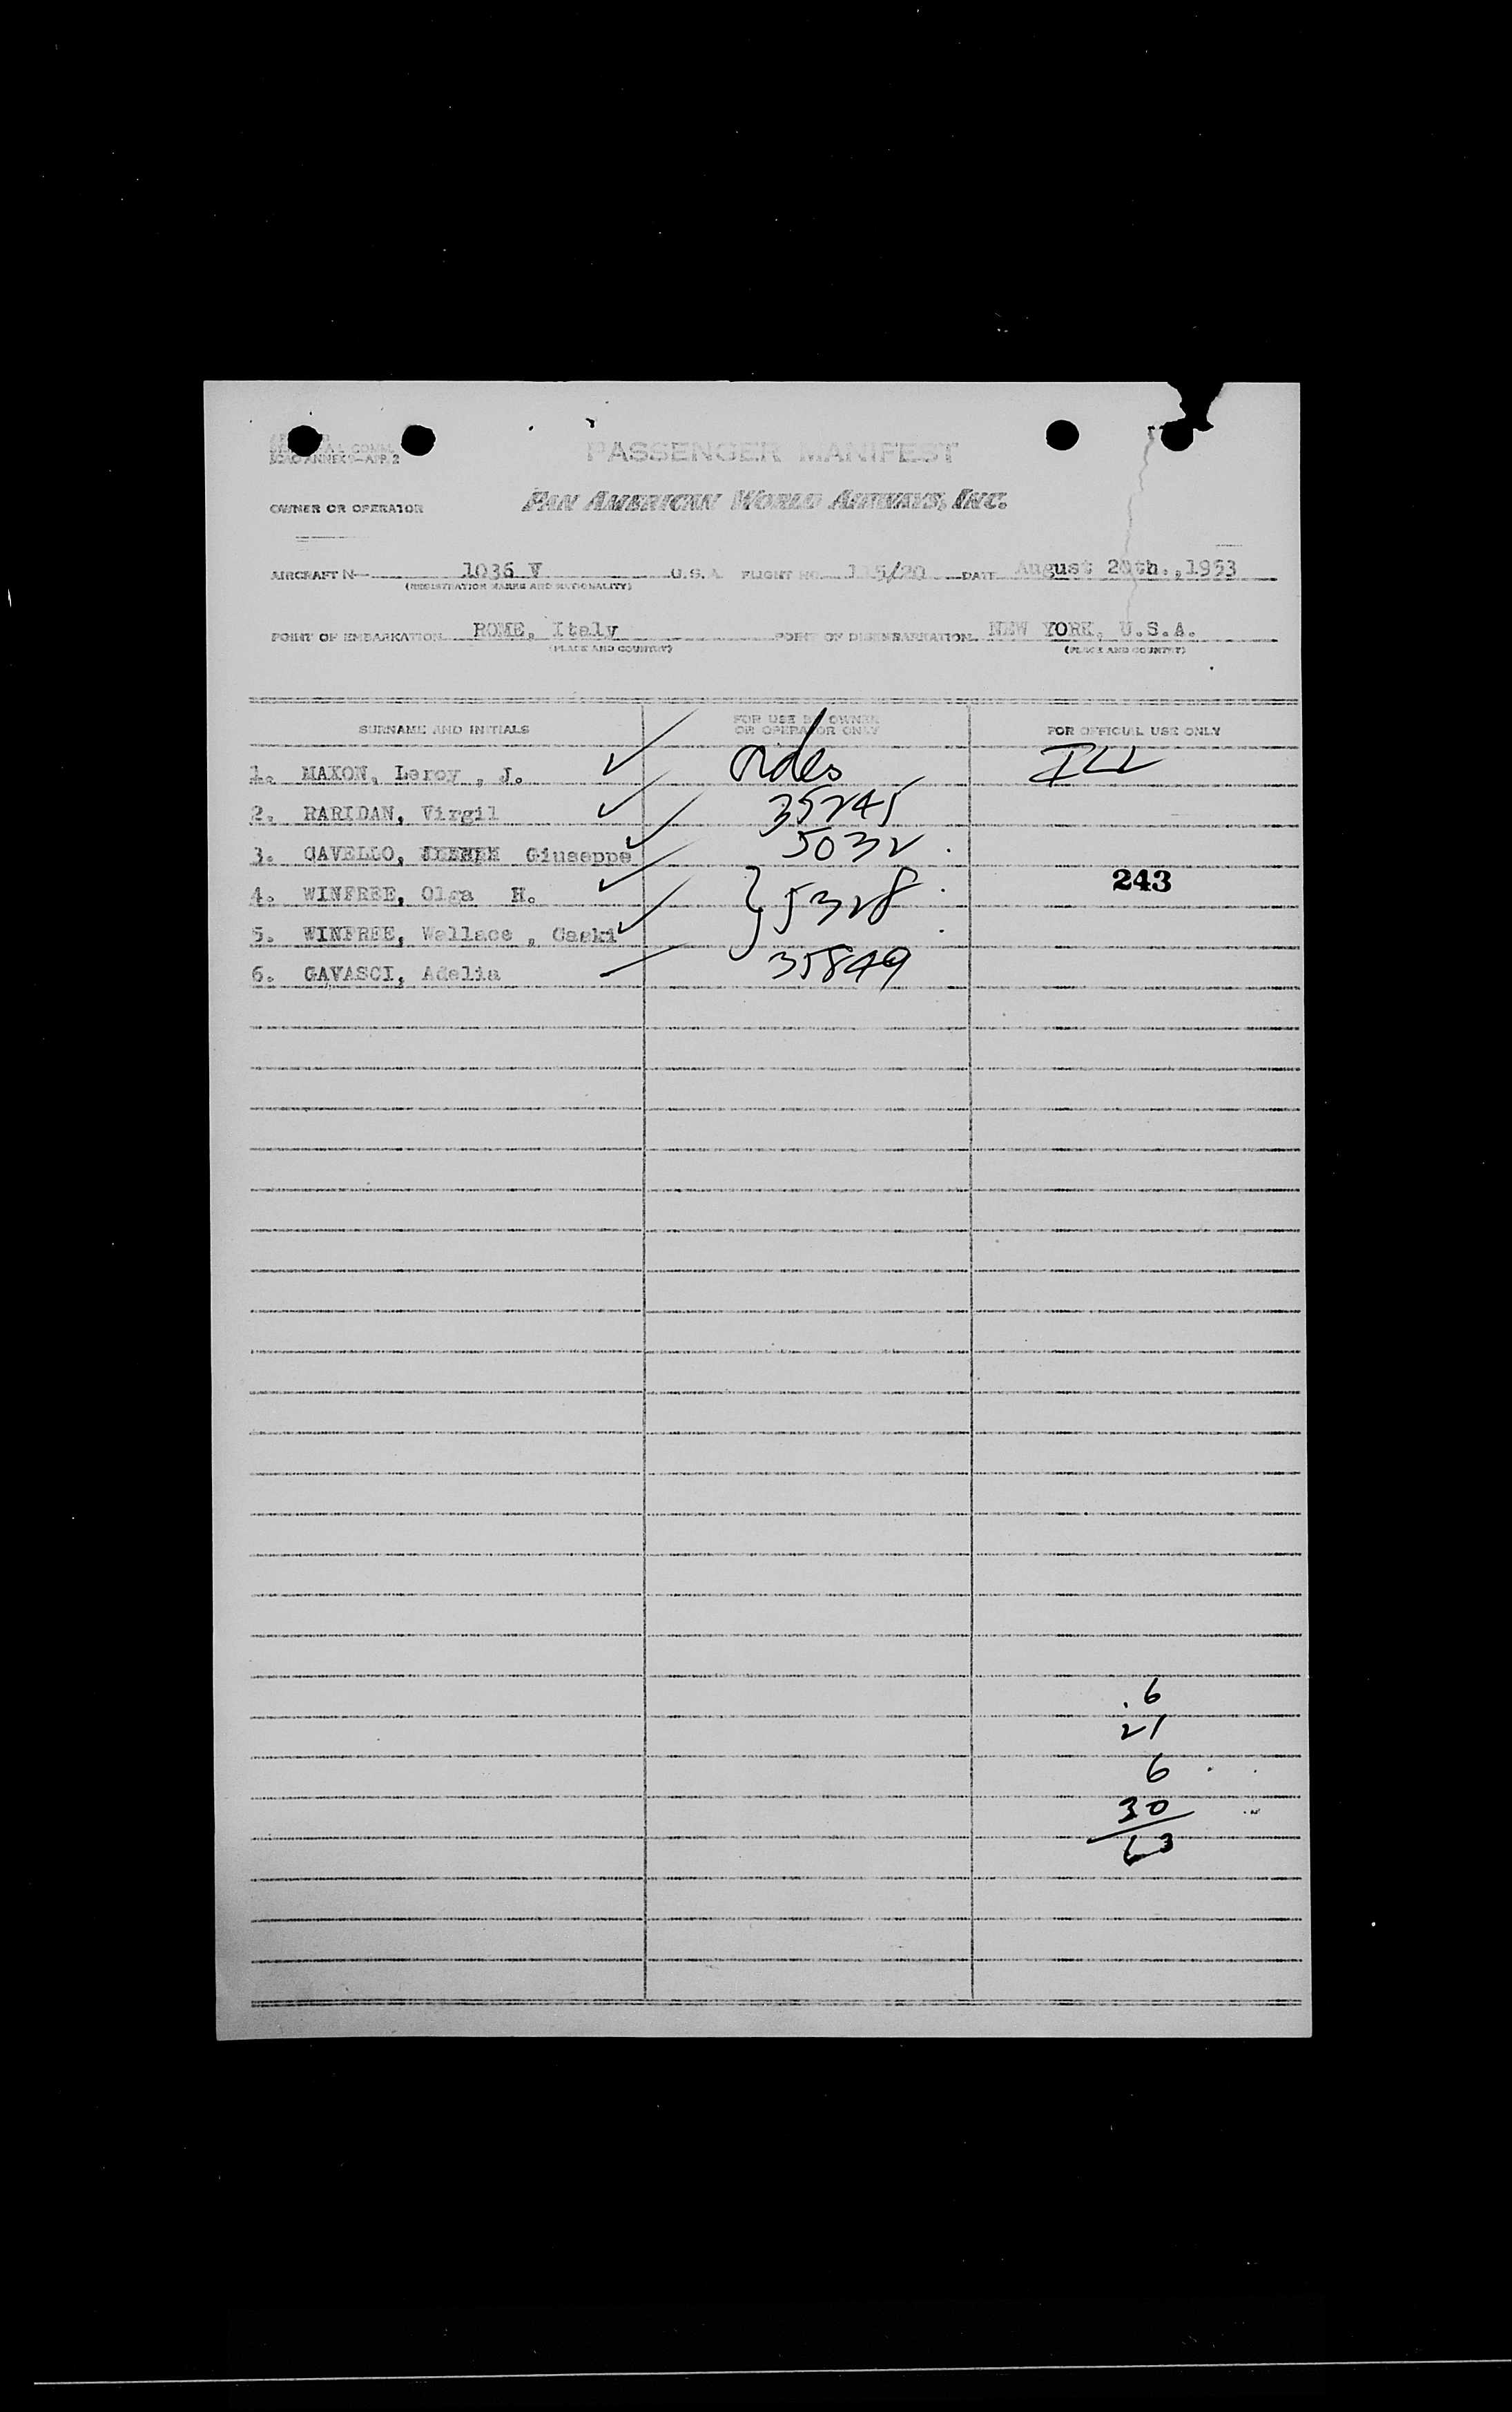 PASSENGER MANIFEST
ICAO ANNEX 9—APP. 2
OWNER OR OPERATOR PAN AMERICAN WORLD AIRWAYS, INC.
AIRCRAFT N— 1036 V U.S.A. FLIGHT NO. 115/20 DATE August 20th.,1953
(REGISTRATION MARKS AND NATIONALITY)
POINT OF EMBARKATION ROME, Italy POINT OF DISEMBARKATION NEW YORK, U.S.A.
(PLACE AND COUNTRY) (PLACE AND COUNTRY)
SURNAME AND INITIALS FOR USE BY OWNER OR OPERATOR ONLY FOR OFFICIAL USE ONLY
1. MAXON, Leroy , J. ILL
2. RARIDAN, Virgil 35245
3. CAVELLO, Giuseppe 5032
243
4. WINFREE, Olga H. 5328
5. WINFREE, Wallace , Caski
6. GAVASCI, Adelia 35849
6
21
6
30
63